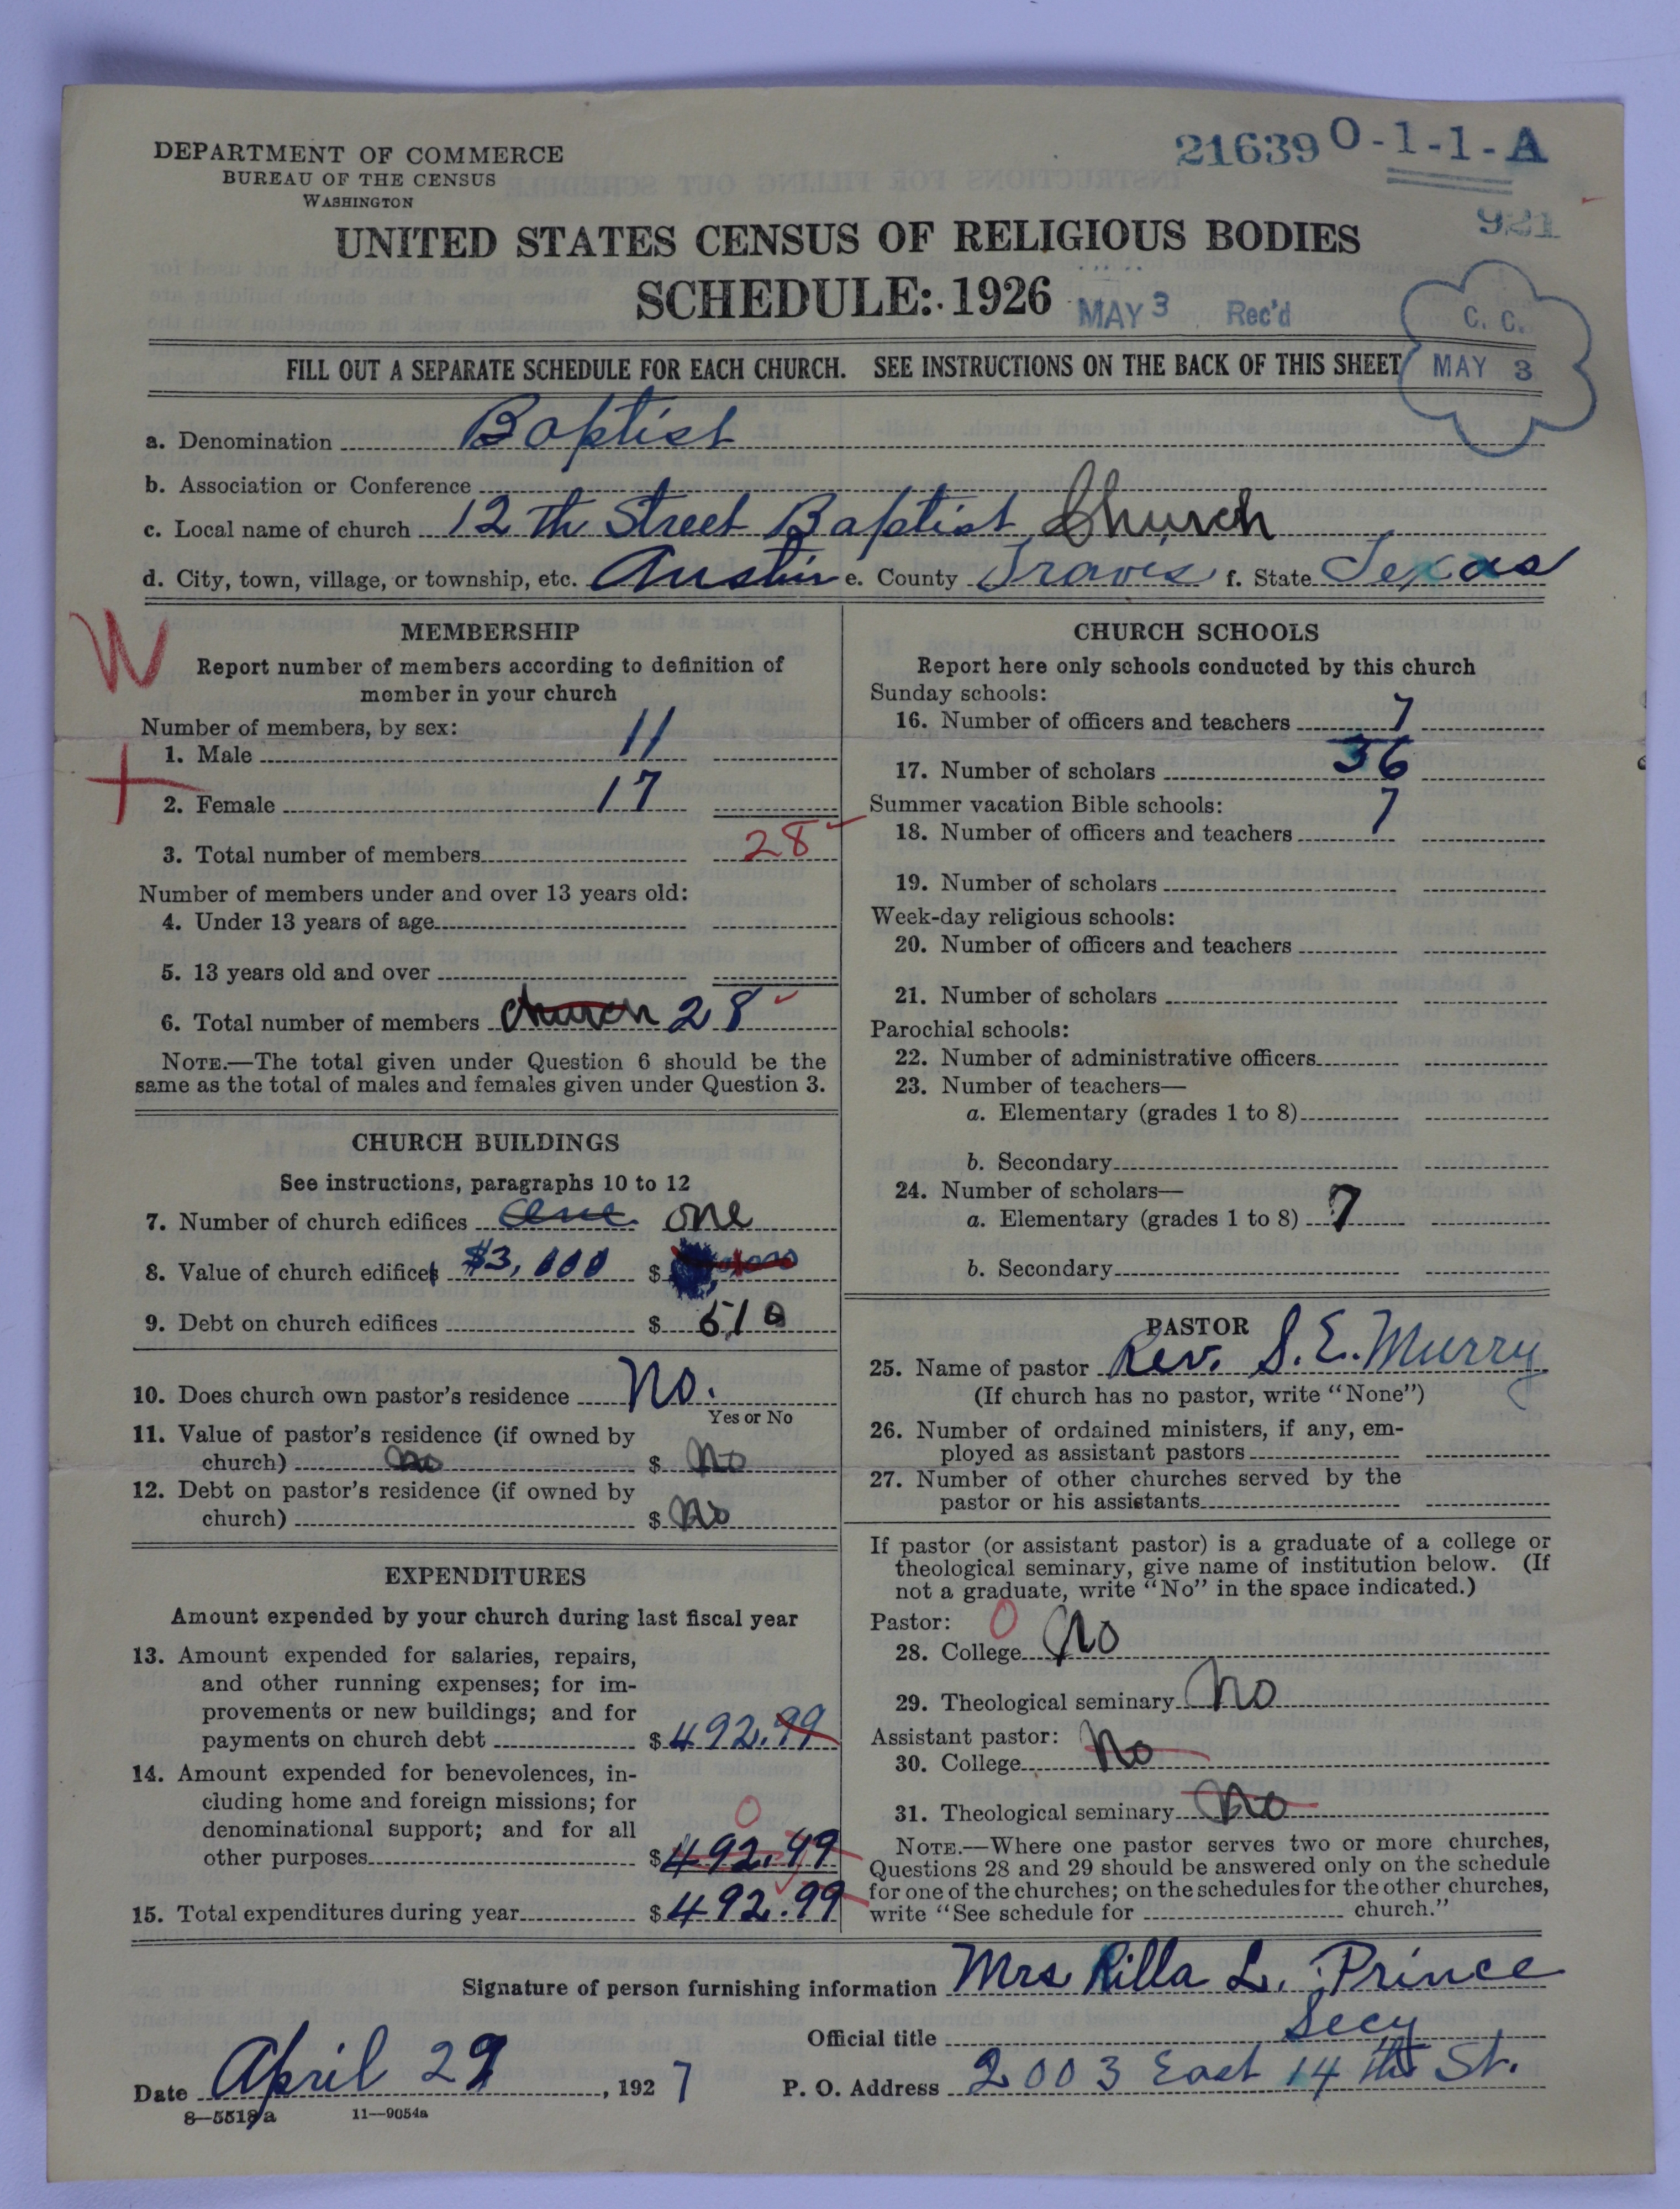 DEPARTMENT OF COMMERCE
BUREAU OF THE CENSUS
WASHINGTON
21639 0-1-1-A
921
UNITED STATES CENSUS OF RELIGIOUS BODIES
SCHEDULE: 1926
MAY 3 Rec'd
C. C.
MAY 3
FILL OUT A SEPARATE SCHEDULE FOR EACH CHURCH. SEE INSTRUCTIONS ON THE BACK OF THIS SHEET
a. Denomination Baptist
b. Association or Conference
c. Local name of church 12th Street Baptist Church
d. City, town, village, or township, etc. Austin e. County Travis f. State Texas
W
MEMBERSHIP
Report number of members according to definition of
member in your church
Number of members, by sex:
1. Male 11
2. Female 17
3. Total number of members 28
Number of members under and over 13 years old:
4. Under 13 years of age
5. 13 years old and over
6. Total number of members church 28
NOTE.—The total given under Question 6 should be the
same as the total of males and females given under Question 3.
CHURCH BUILDINGS
See instructions, paragraphs 10 to 12
7. Number of church edifices one one
8. Value of church edifices $3,000 $
9. Debt on church edifices $ 510
10. Does church own pastor's residence No.
Yes or No
11. Value of pastor's residence (if owned by
church) no $ No
12. Debt on pastor's residence (if owned by
church) $ No
EXPENDITURES
Amount expended by your church during last fiscal year
13. Amount expended for salaries, repairs,
and other running expenses; for im-
provements or new buildings; and for
payments on church debt $ 492.99
14. Amount expended for benevolences, in-
cluding home and foreign missions; for
denominational support; and for all 0
other purposes $ 492.99
15. Total expenditures during year $ 492.99
CHURCH SCHOOLS
Report here only schools conducted by this church
Sunday schools:
16. Number of officers and teachers 7
17. Number of scholars 36
Summer vacation Bible schools:
18. Number of officers and teachers 7
19. Number of scholars
Week-day religious schools:
20. Number of officers and teachers
21. Number of scholars
Parochial schools:
22. Number of administrative officers
23. Number of teachers—
a. Elementary (grades 1 to 8)
b. Secondary
24. Number of scholars—
a. Elementary (grades 1 to 8) 7
b. Secondary
PASTOR
25. Name of pastor Rev. S. E. Murry
(If church has no pastor, write "None")
26. Number of ordained ministers, if any, em-
ployed as assistant pastors
27. Number of other churches served by the
pastor or his assistants
If pastor (or assistant pastor) is a graduate of a college or
theological seminary, give name of institution below. (If
not a graduate, write "No" in the space indicated.)
Pastor: 0
28. College No
29. Theological seminary No
Assistant pastor:
30. College No
31. Theological seminary No
NOTE.—Where one pastor serves two or more churches,
Questions 28 and 29 should be answered only on the schedule
for one of the churches; on the schedules for the other churches,
write "See schedule for church."
Signature of person furnishing information Mrs Rilla L. Prince
Official title Secy
Date April 29, 1927 P. O. Address 2003 East 14th St.
8—5518a 11—9054a